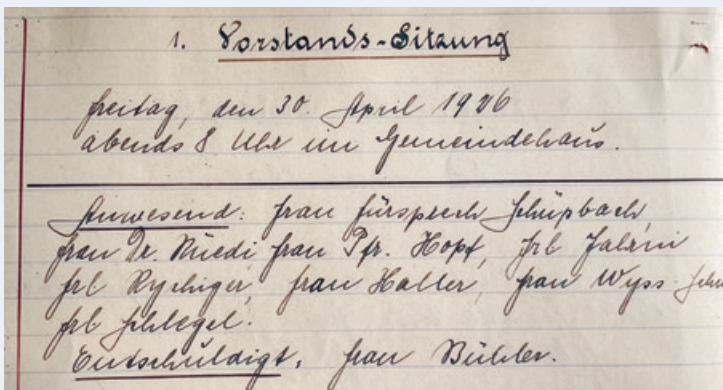 1. Vorstands-Sitzung
Freitag, den 30. April 1926
abends 8 Uhr im Gemeindehaus.
Anwesend: Frau Fürsprech Schüpbach,
Frau Dr. Ruedi Frau Pfr. Hopf, Frl
Frl Rychiger, Frau Haller, Frau Wyss
Frl Schlegel.
Entschuldigt, Frau Bühler.